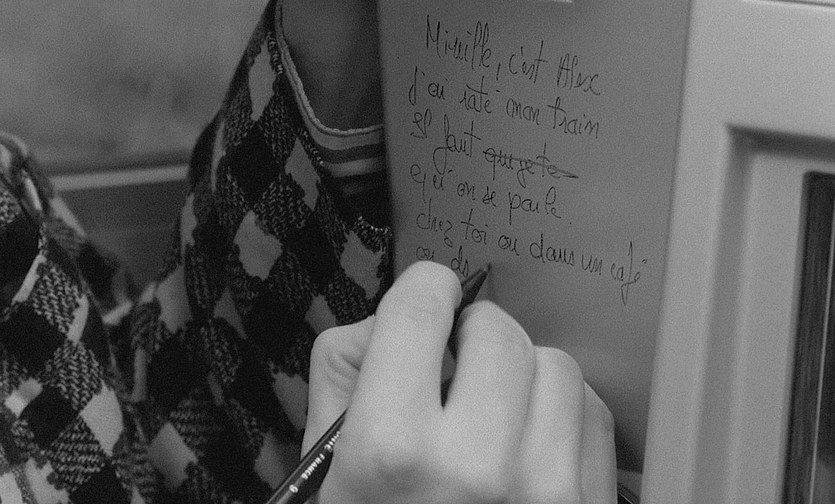 Mireille, c'est Alex
J'ai raté mon train
Il faut que je te
qu'on se parle.
chez toi ou dans un café
ou ds
FRANCE